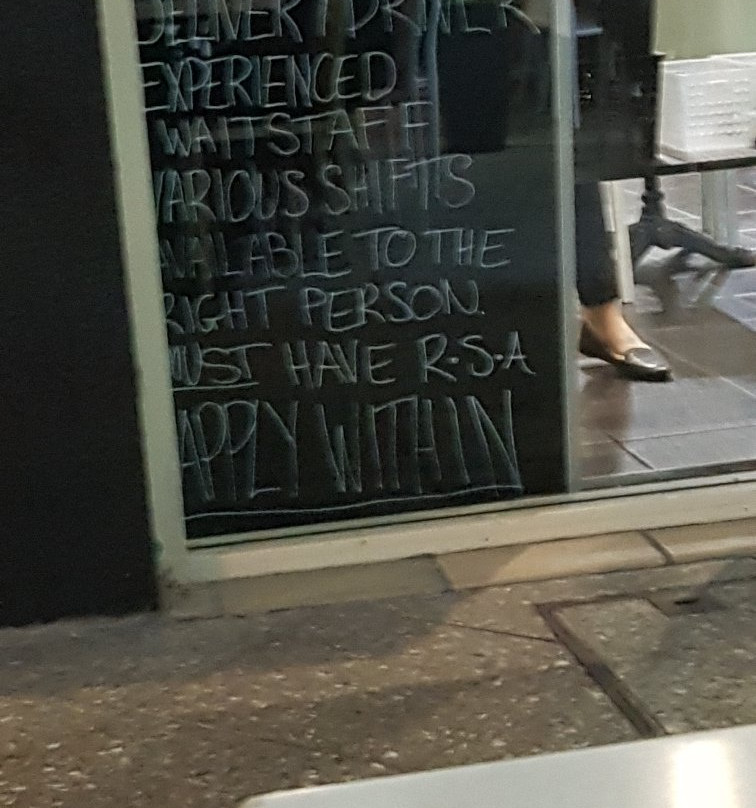 DELIVERY DRIVER
EXPERIENCED
WAITSTAFF
VARIOUS SHIFTS
AVAILABLE TO THE
RIGHT PERSON.
MUST HAVE R.S.A
APPLY WITHIN